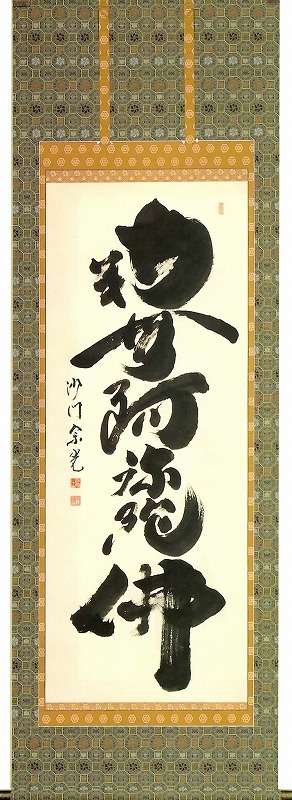 南無阿弥陀佛
沙門宗光